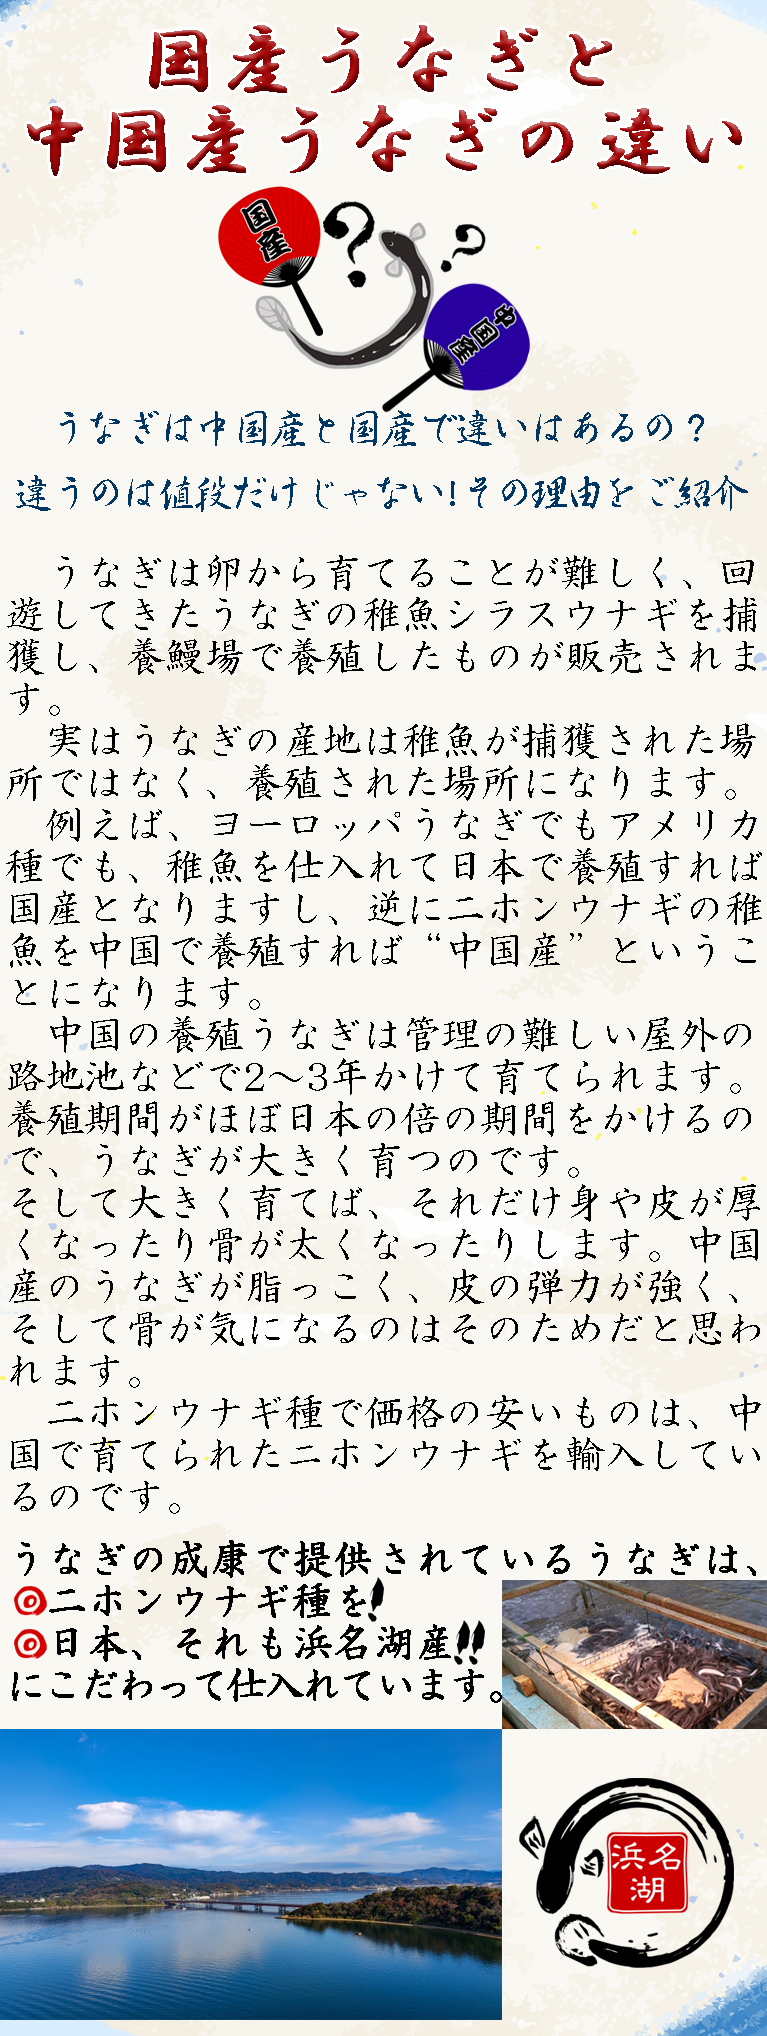 国産うなぎと
中国産うなぎの違い
国産
中国産
うなぎは中国産と国産で違いはあるの？
違うのは値段だけじゃない!その理由をご紹介
　うなぎは卵から育てることが難しく、回
遊してきたうなぎの稚魚シラスウナギを捕
獲し、養鰻場で養殖したものが販売されま
す。
　実はうなぎの産地は稚魚が捕獲された場
所ではなく、養殖された場所になります。
　例えば、ヨーロッパうなぎでもアメリカ
種でも、稚魚を仕入れて日本で養殖すれば
国産となりますし、逆にニホンウナギの稚
魚を中国で養殖すれば“中国産”というこ
とになります。
　中国の養殖うなぎは管理の難しい屋外の
路地池などで2～3年かけて育てられます。
養殖期間がほぼ日本の倍の期間をかけるの
で、うなぎが大きく育つのです。
そして大きく育てば、それだけ身や皮が厚
くなったり骨が太くなったりします。中国
産のうなぎが脂っこく、皮の弾力が強く、
そして骨が気になるのはそのためだと思わ
れます。
　ニホンウナギ種で価格の安いものは、中
国で育てられたニホンウナギを輸入してい
るのです。
うなぎの成康で提供されているうなぎは、
◎ニホンウナギ種を!
◎日本、それも浜名湖産!!
にこだわって仕入れています。
浜名
湖